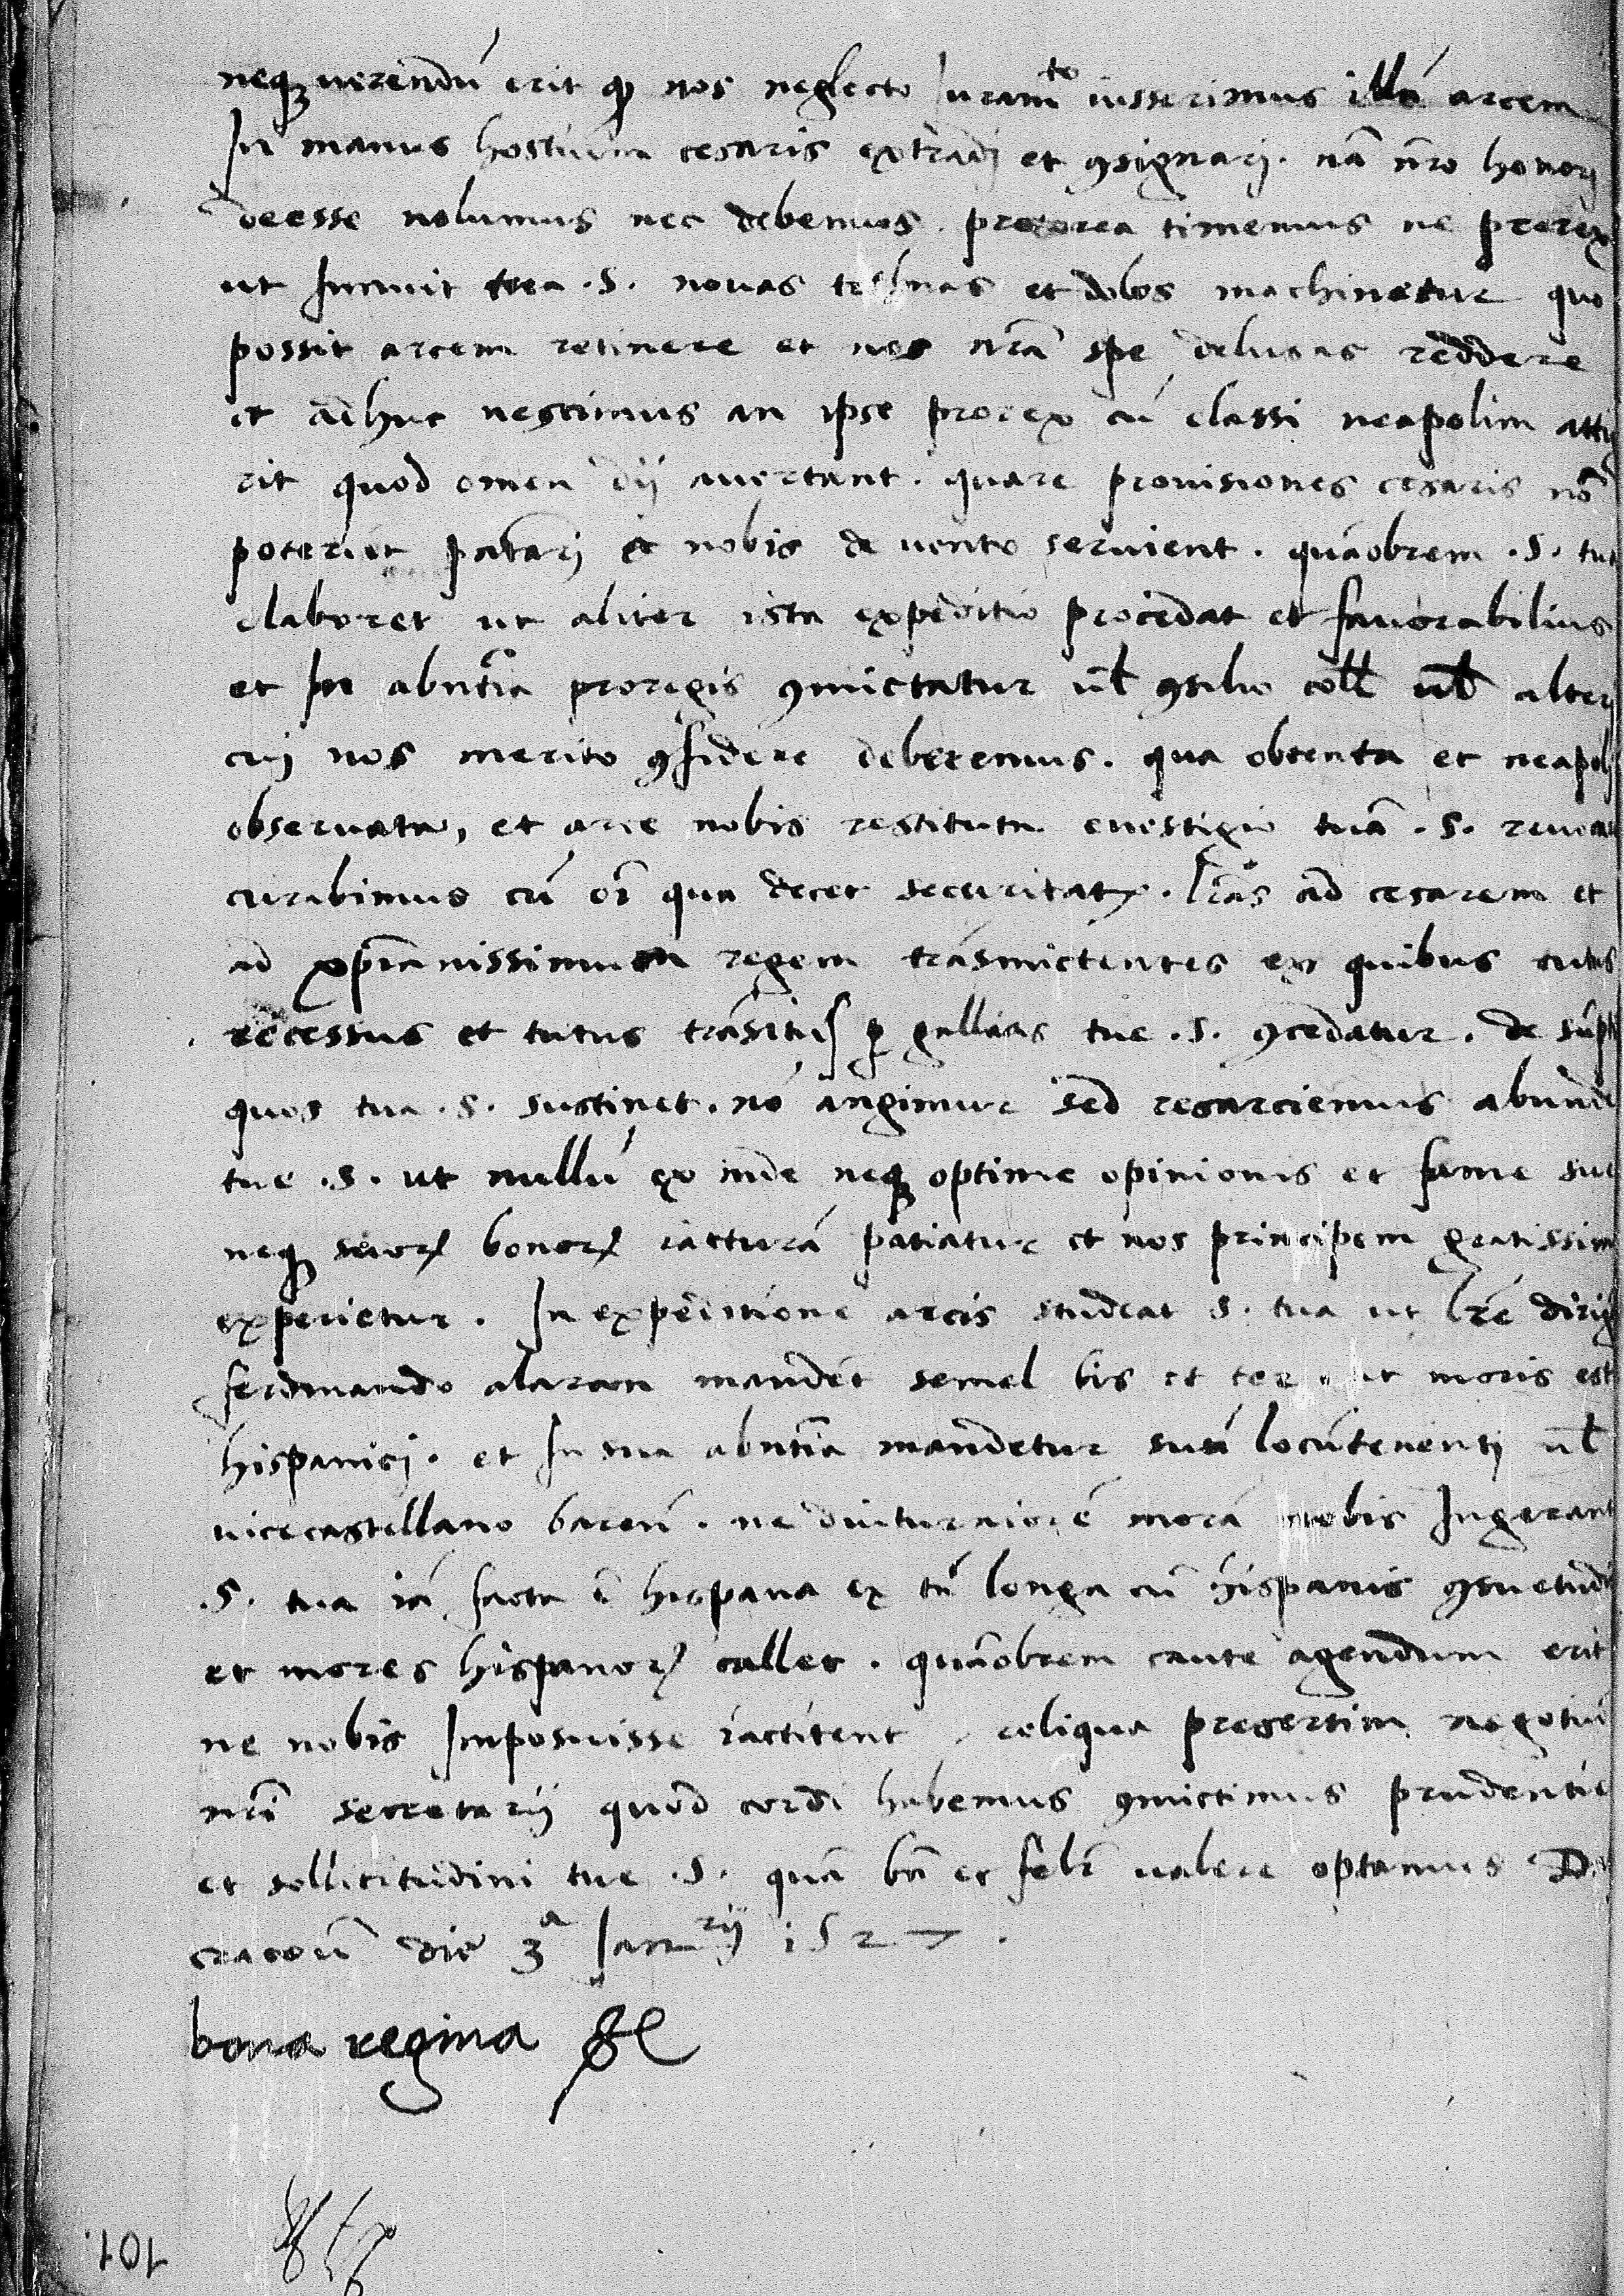 neqȝ uerendú erit ꝙ nos neglecto Iuramᵗᵒ iusserimus illá arcem
In manus hostium cesaris extradj et ꝯsignarj. nã nr̃o honorj
deesse nolumus nec debemus. preterea timemus ne prorex
ut Innuit tua .S. nouas technas et dolos machinetur quo
possit arcem retinere et nos nr̃ã spe delusas reddere
et adhuc nescimus an ipse prorex cú classi neapolim atti
rit quod omen dij auertant. quare prouisiones cesaris nõ
poterút et nobis de uento seruient. quáobrem .S. tua
elaboret ut aliter ista expeditio procedat et fauorabilius
et In abñtia proregis ꝯmictatur ul̃ ꝯsilio coll̃ ul̃ alterj
cuj nos merito ꝯfidere deberemus. qua obtenta et neapolj
obseruata, et arce nobis restituta euestigio tuã .S. reuocar
curabimus cú oĩ qua decet securitate. lr̃ãs ad cesarem et
ad xp̃ianissimum regem trásmictentes ex quibus tutus
recessus et tutus trãsitus ꝑ gallias tue .S. ꝯcedatur. de súpt
quos tua .S. sustinet. nó angimur sed resarciemus abunde
tue .S. ut nullú ex inde neqȝ optime opinionis et fame sue
neqȝ suorꝝ bonorꝝ iacturá patiatur et nos principem gratissim
experietur. In expeditione arcis studeat S. tua ut lr̃e dirig
ferdinando alarcon mandét semel bis et ter ut moris est
hispanicj. et In sua abñtia mandetur suú locútenentj ul̃
uicecastellano bareñ. ne diuturniorẽ morã nobis Ingerant
.S. tua iá facta ẽ hispana ex tñ longa cú hispanis ꝯsuetudi
et mores hispanorꝝ callet. quãobrem caute agendum erit
ne nobis Imposuisse iactitent, reliqua presertim negotiú
nr̃i secretarij quod cordi habemus ꝯmictimus prudentie
et sollicitudini tue .S. quã bñ et felr̃ ualere optamus D
cracouĩ die 3ª Ianʳⁱʲ 1527.
bona regina
101.